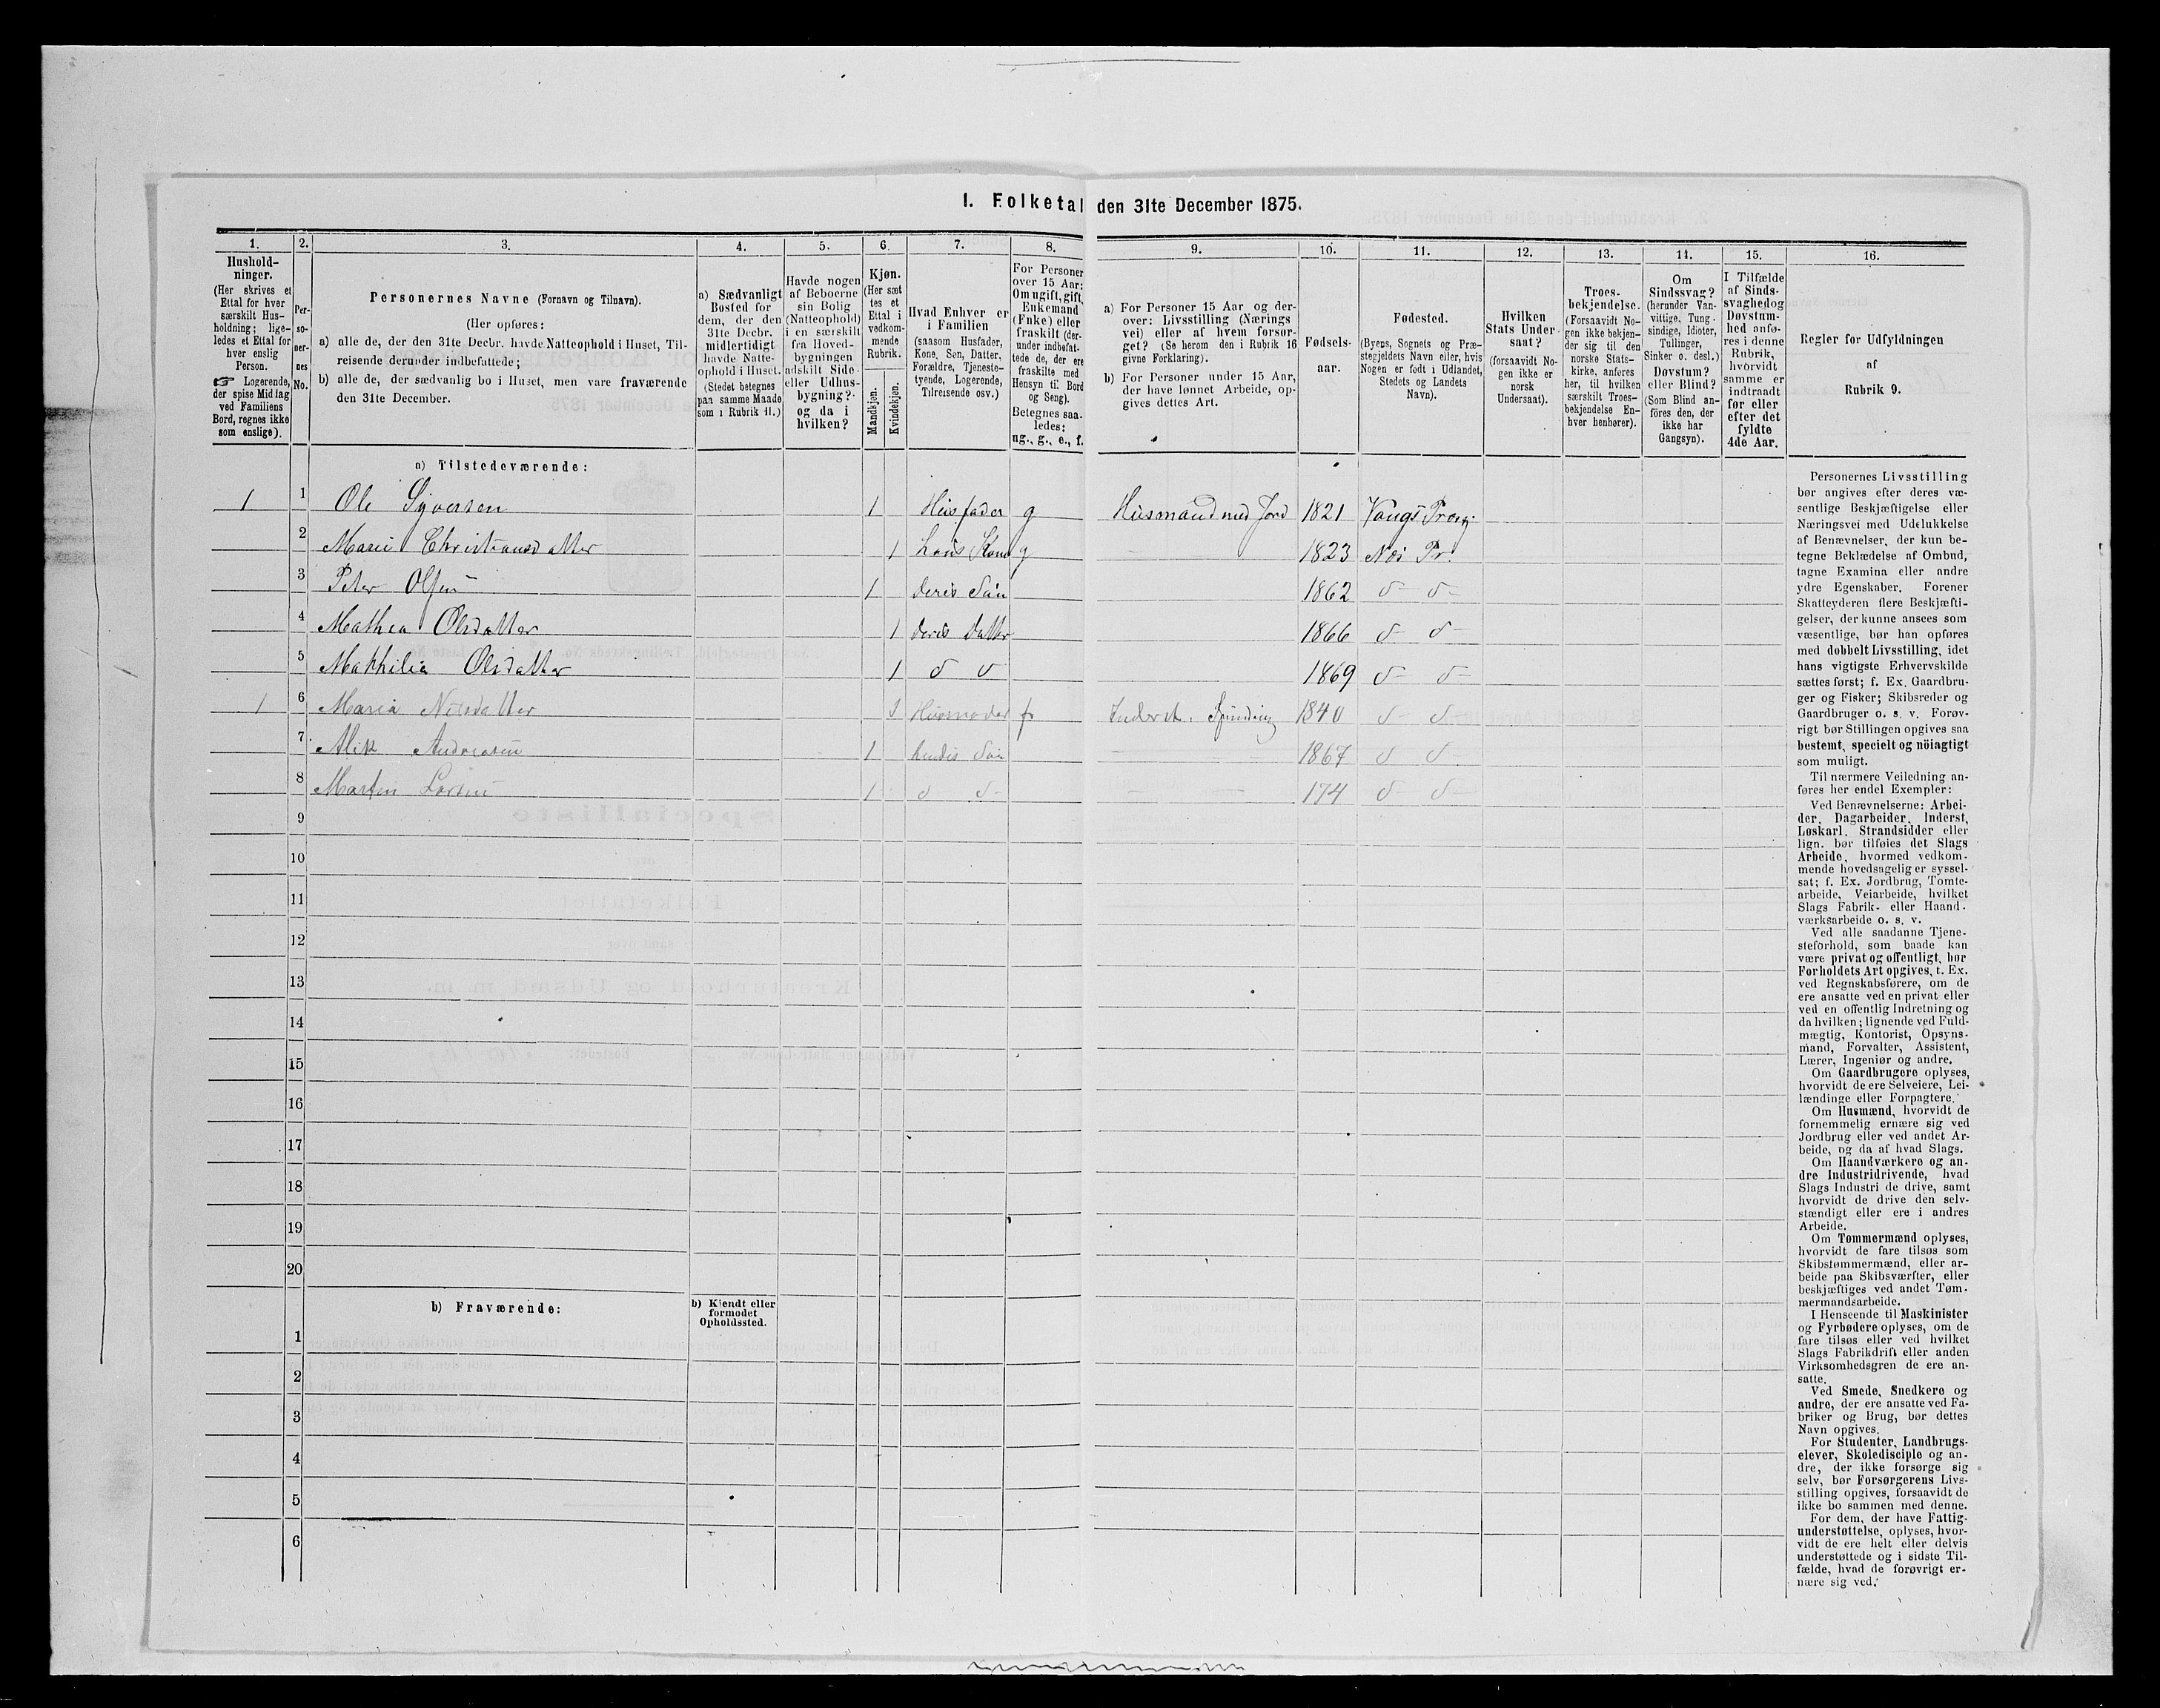 1. Folketal den 31te December 1875.
1. 2. 3. 4. 5. 6. 7. 8. 9. 10. 11. 12. 13. 14. 15. 16.
Hushold-
ninger.
(Her skrives et
Ettal for hver
særskilt Hus-
holdning; lige-
ledes et Ettal for
hver enslig
Person.
☞ Logerende,
der spise Middag
ved Familiens
Bord, regnes ikke
som enslige).
Per-
so-
ner-
nes
No.
Personernes Navne (Fornavn og Tilnavn).
(Her opføres:
a) alle de, der den 31te Decbr. havde Natteophold i Huset, Til-
reisende derunder indbefattede;
b) alle de, der sædvanlig bo i Huset, men vare fraværende
den 31te December.
a) Sædvanligt
Bosted for
dem, der den
31te Decbr.
midlertidigt
havde Natte-
ophold i Huset.
(Stedet betegnes
paa samme Maade
som i Rubrik 11.)
Havde nogen
af Beboerne
sin Bolig
(Natteophold)
i en særskilt
fra Hoved-
bygningen
adskilt Side-
eller Udhus-
bygning?
og da i
hvilken?
Kjøn.
(Her sæt
tes et
Ettal i
vedkom-
mende
Rubrik.
Mandkjøn.
Kvindekjøn.
Hvad Enhver er
i Familien
(saasom Husfader,
Kone, Søn, Datter,
Forældre, Tjeneste-
tyende, Logerende,
Tilreisende osv.)
For Personer
over 15 Aar:
Om ugift, gift,
Enkemand
(Enke) eller
fraskilt (der-
under indbefat-
tede de, der ere
fraskilte med
Hensyn til Bord
og Seng).
Betegnes saa-
ledes:
ug., g., e., f.
a) For Personer 15 Aar og der-
over: Livsstilling (Nærings
vei) eller af hvem forsør-
get? (Se herom den i Rubrik 16
givne Forklaring).
b) For Personer under 15 Aar,
der have lønnet Arbeide, op-
gives dettes Art.
Fødsels-
aar.
Fødested.
(Byens, Sognets og Præ-
stegjeldets Navn eller, hvis
Nogen er født i Udlandet,
Stedets og Landets
Navn).
Hvilken
Stats Under-
saat?
(forsaavidt No-
gen ikke er
norsk
Undersaat).
Troes-
bekjendelse.
(Forsaavidt No-
gen ikke bekjen-
der sig til den
norske Stats-
kirke, anføres
her, til hvilken
særskilt Troes-
bekjendelse En-
hver henhører).
Om
Sindssvag?
(herunder Van-
vittige, Tung-
sindige, Idioter,
Tullinger,
Sinker o. desl.)
Døvstum?
eller Blind?
(Som Blind an-
føres den, der
ikke har
Gangsyn).
I Tilfælde
af Sinds-
svaghed og
Døvstum-
hed anfø-
res i denne
Rubrik,
hvorvidt
samme er
indtraadt
før eller
efter det
fyldte
4de Aar.
Regler for Udfyldningen
af
Rubrik 9.
a) Tilstedeværende:
1 1 Ole Syversen 1 Husfader g Husmand med Jord 1821 Vangs Præstg.
2 Marie Christiansdatter 1 hans Kone g 1823 Næs Pr.
3 Peter Olsen 1 deres Søn 1862 d- d-
4 Mathea Olsdatter 1 deres datter 1866 d- d-
5 Mathilia Olsdatter 1 d d 1869 d- d-
1 6 Maria Nilsdatter 1 Husmoder Inderst. Spinding 1840 d d-
7 Andreasen 1 hendes Søn 1867 d d-
8 Martin 1 d d- 174 d- d-
9
10
11
12
13
14
15
16
17
18
19
20
b) Fraværende:
b) Kjendt eller
formodet
Opholdssted.
1
2
3
4
5
6
Personernes Livsstilling
bør angives efter deres væ-
sentlige Beskjæftigelse eller
Næringsvei med Udelukkelse
af Benævnelser, der kun be-
tegne Beklædelse af Ombud,
tagne Examina eller andre
ydre Egenskaber. Forener
Skatteyderen flere Beskjæfti-
gelser, der kunne ansees som
væsentlige, bør han opføres
med dobbelt Livsstilling, idet
hans vigtigste Erhvervskilde
sættes først; f. Ex. Gaardbru-
ger og Fisker; Skibsreder og
Gaardbruger o. s. v. Forøv-
rigt bør Stillingen opgives saa
bestemt, specielt og nöiagtigt
som muligt.
Til nærmere Veiledning an-
føres her endel Exempler:
Ved Benævnelserne: Arbei-
der, Dagarbeider, Inderst,
Løskarl, Strandsidder eller
lign. bør tilføies det Slags
Arbeide, hvormed vedkom-
mende hovedsagelig er syssel-
sat; f. Ex. Jordbrug, Tomte-
arbeide, Veiarbeide, hvilket
Slags Fabrik- eller Haand-
værksarbeide o. s. v.
Ved alle saadanne Tjene-
steforhold, som baade kan
være privat og offentligt, bør
Forholdets Art opgives, t. Ex.
ved Regnskabsførere, om de
ere ansatte ved en privat eller
ved en offentlig Indretning og
da hvilken; lignende ved Fuld-
mægtig, Kontorist, Opsyns-
mand, Forvalter, Assistent,
Lærer, Ingeniør og andre.
Om Gaardbrugere oplyses,
hvorvidt de ere Selveiere, Lei-
lændinge eller Forpagtere.
Om Husmænd, hvorvidt de
fornemmelig ernære sig ved
Jordbrug eller ved andet Ar-
beide, og da af hvad Slags.
Om Haandværkere og an-
dre Industridrivende, hvad
Slags Industri de drive, samt
hvorvidt de drive den selv-
stændigt eller ere i andres
Arbeide.
Om Tømmermænd oplyses,
hvorvidt de fare tilsøs som
Skibstømmermænd, eller ar-
beide paa Skibsværfter, eller
beskjæftiges ved andet Tøm-
mermandsarbeide.
I Henseende til Maskinister
og Fyrbødere oplyses, om de
fare tilsøs eller ved hvilket
Slags Fabrikdrift eller anden
Virksomhedsgren de ere an-
satte.
Ved Smede, Snedkere og
andre, der ere ansatte ved Fa-
briker og Brug, bør dettes
Navn opgives.
For Studenter, Landbrugs-
elever, Skoledisciple og an-
dre, der ikke forsørge sig
selv, bør Forsørgerens Livs-
stilling opgives, forsaavidt de
ikke bo sammen med denne.
For dem, der have Fattig-
understøttelse, oplyses, hvor-
vidt de ere helt eller delvis
understøttede og i sidste Til-
fælde, hvad de forøvrigt er-
nære sig ved.